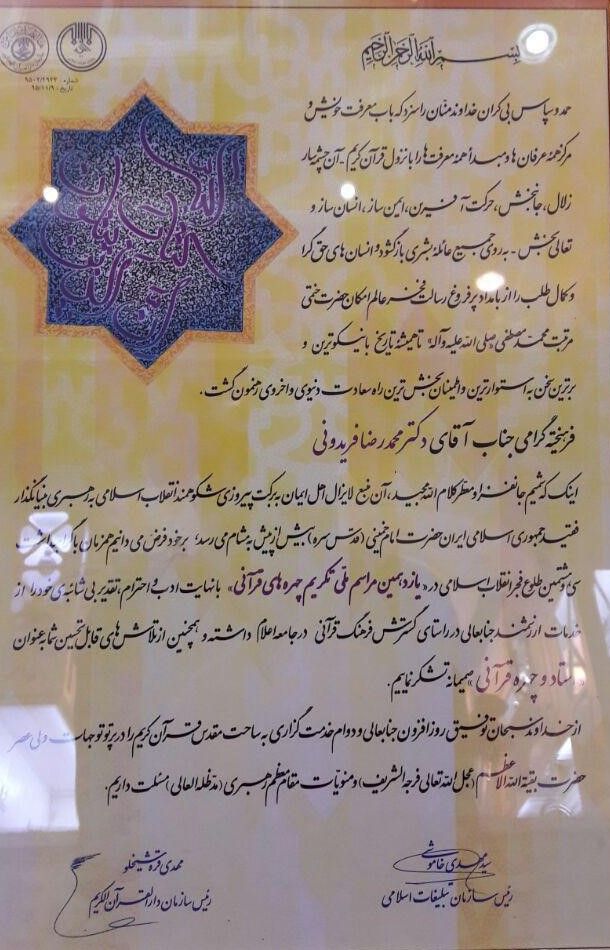 بسم الله الرحمن الرحیم
شماره: ۹۵۰۲/۲۹۲۳
تاریخ: ۹۵/۱۱/۹
حمد و سپاس بی کران خداوند منّان را سزد که باب معرفت خویش و
مرکز همهٔ عرفان ها و مبدأ همهٔ معرفت ها را با نزول قرآن کریم - آن چشمه سار
زلال، جانبخش، حرکت آفرین، ایمن ساز، انسان ساز و
تعالی بخش - به روی جمیع عائلهٔ بشری بازگشود و انسان های حق گرا
و کمال طلب را از بامداد پرفروغ رسالت فخر عالم امکان حضرت ختمی
مرتبت محمد مصطفی «صلی الله علیه و آله» تا همیشهٔ تاریخ با نیکوترین و
برترین سخن به استوارترین و اطمینان بخش ترین راه سعادت دنیوی و اخروی رهنمون گشت.
فرهیخته گرامی جناب آقای دکتر محمدرضا فریدونی
اینک که شمیم جانفزا و معطر کلام الله مجید، آن منبع لایزال اهل ایمان به برکت پیروزی شکوهمند انقلاب اسلامی به رهبری بنیانگذار
فقید جمهوری اسلامی ایران حضرت امام خمینی (قدس سره) بیش از پیش به مشام می رسد؛ برخود فرض می دانیم همزمان با گرامیداشت
سی و هشتمین طلوع فجر انقلاب اسلامی در «یازدهمین مراسم ملی تکریم چهره های قرآنی» با نهایت ادب و احترام، تقدیر بی شائبه ی خود را از
خدمات ارزشمند جنابعالی در راستای گسترش فرهنگ قرآنی در جامعه اعلام داشته و همچنین از تلاش های قابل تحسین شما به عنوان
«استاد و چهره قرآنی» صمیمانه تشکر نماییم.
از خداوند سبحان توفیق روزافزون جنابعالی و دوام خدمت گزاری به ساحت مقدس قرآن کریم را در پرتو توجهات ولی عصر
حضرت بقیة الله الاعظم (عجل الله تعالی فرجه الشریف) و منویات مقام معظم رهبری (مدظله العالی) مسئلت داریم.
سید مهدی خاموشی
رئیس سازمان تبلیغات اسلامی
مهدی قره شیخلو
رئیس سازمان دارالقرآن الکریم